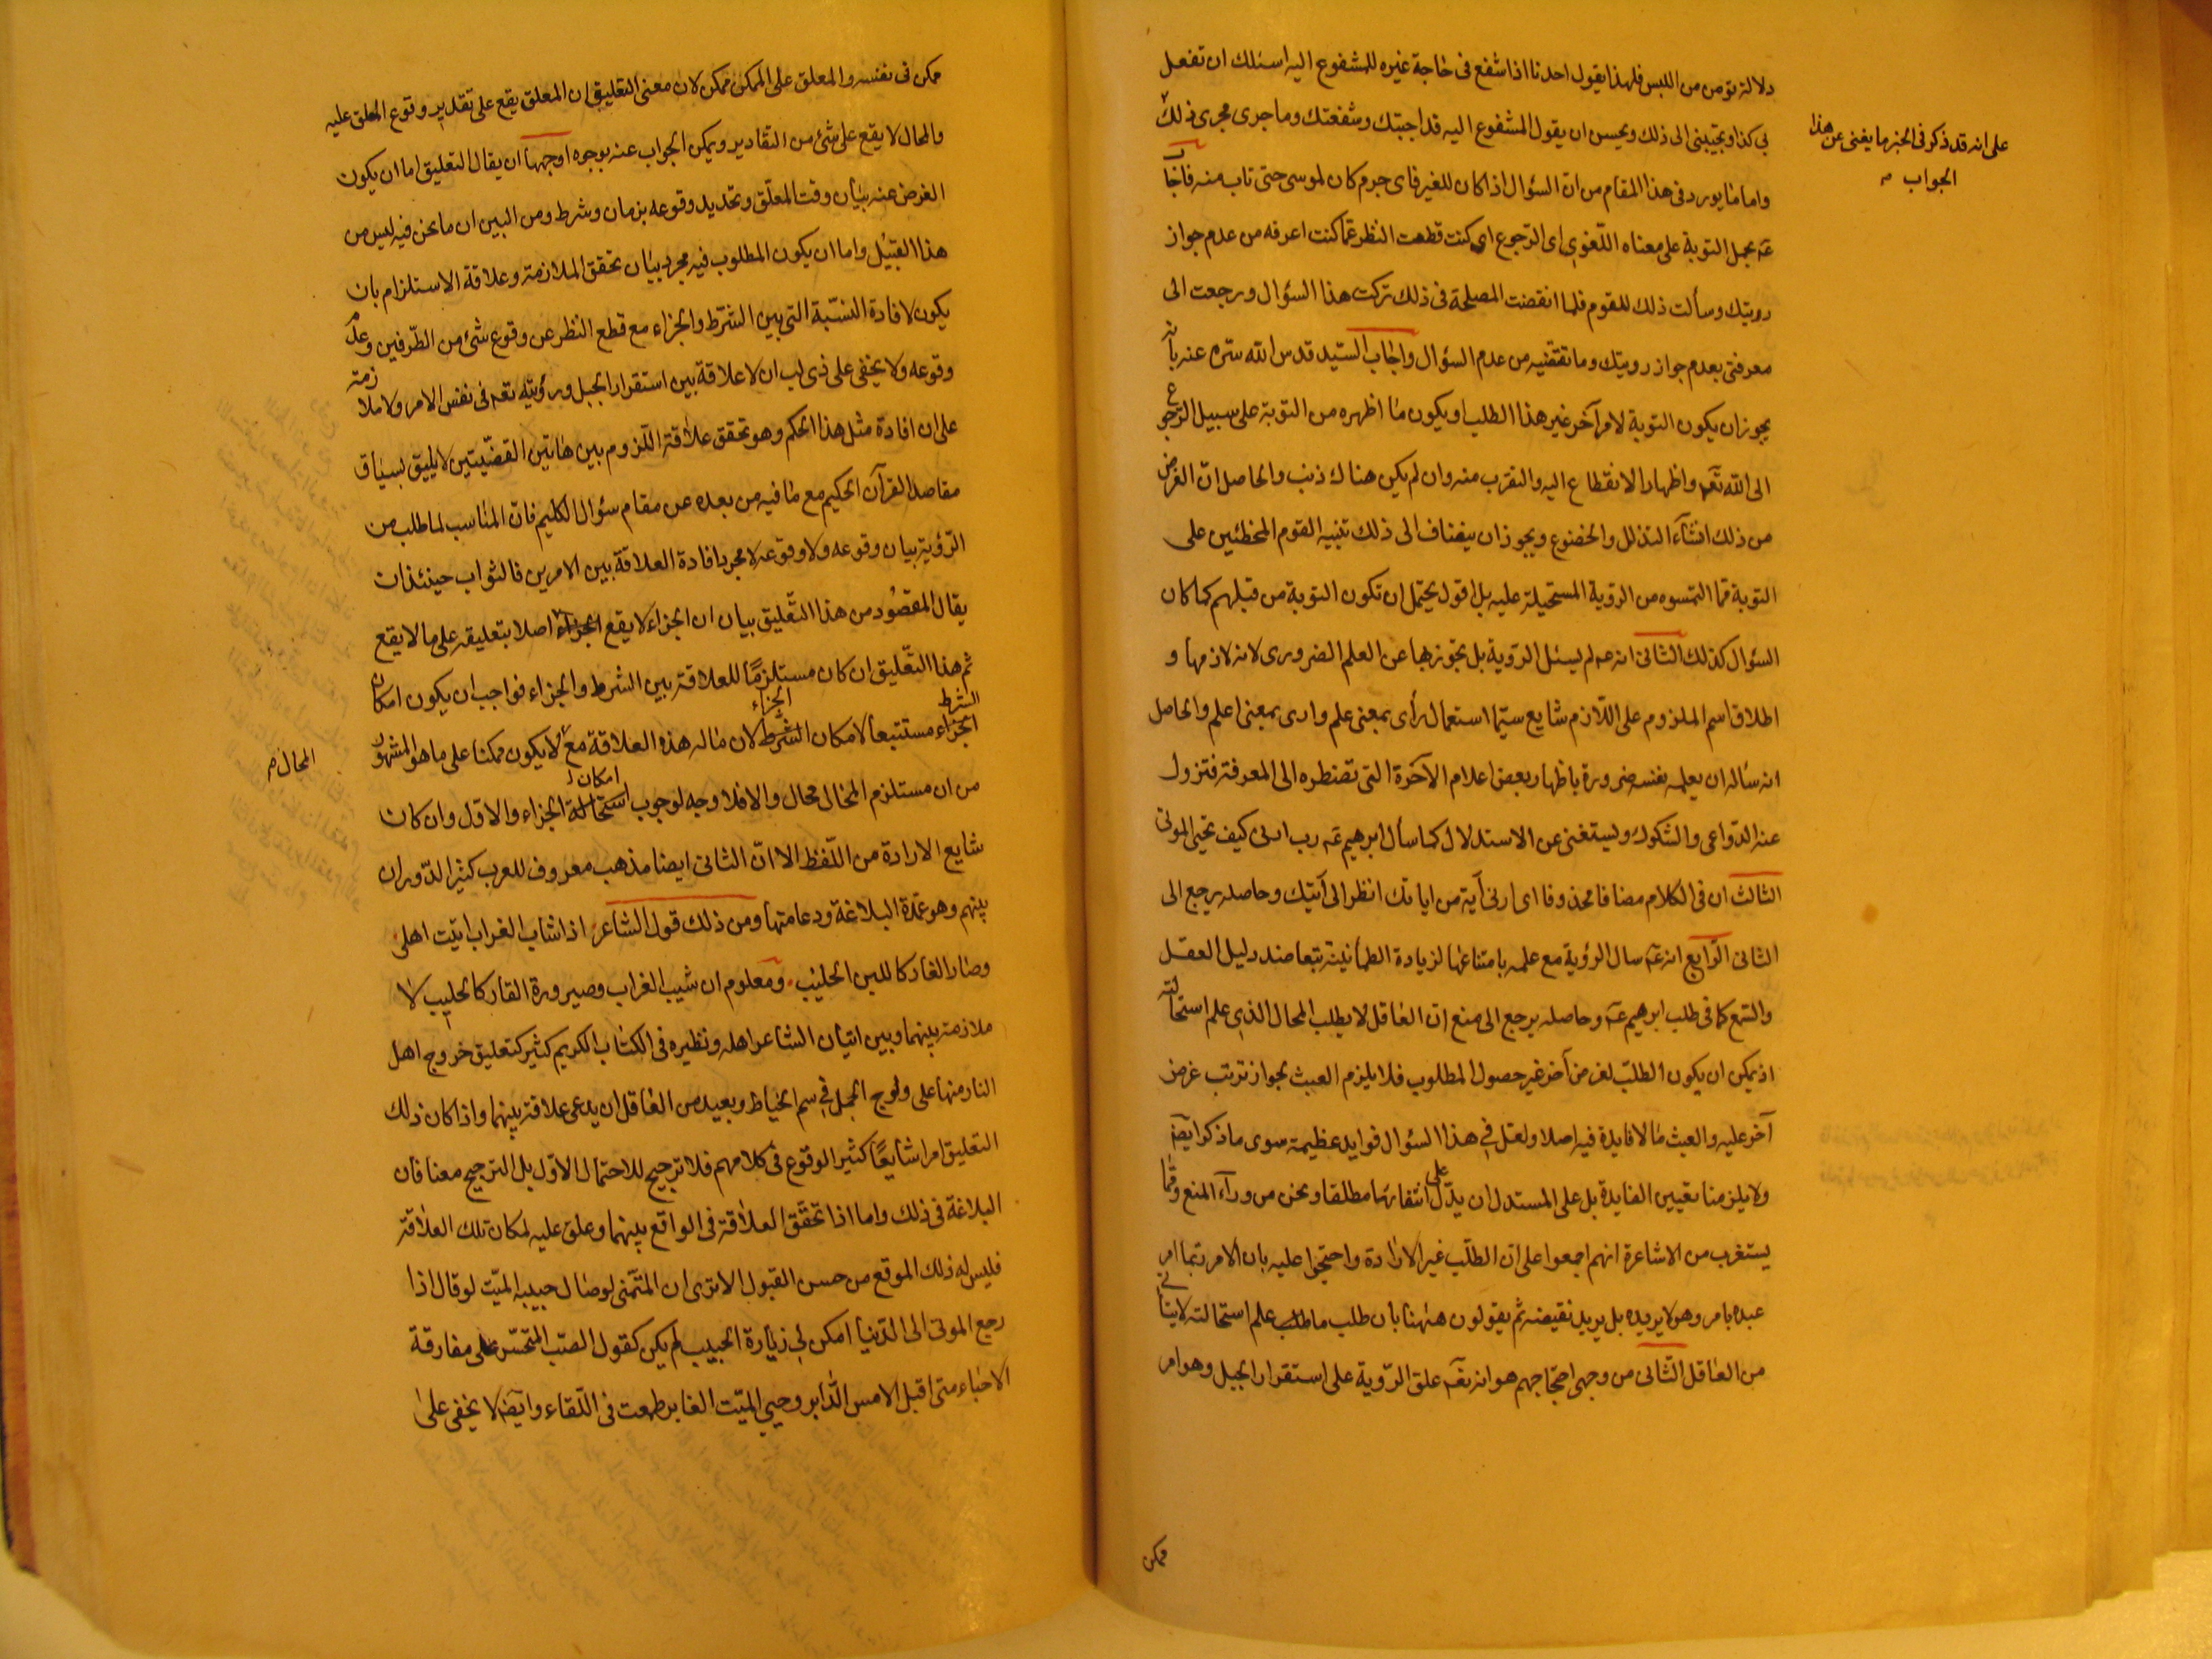 دلالة تؤمن من اللبس فلهذا يقول احدنا اذا شفع فى حاجة غيره للمشفوع اليه اسئلك ان تفعل
بى كذا وتجيبنى الى ذلك ويحسن ان يقول المشفوع اليه قد اجبتك وشفعتك وما جرى مجرى ذلك
على انه قد ذكر فى الخبر ما يغنى عن هذا
الجواب
واما ما يورد فى هذا المقام من ان السؤال اذا كان للغير فاى جرم كان لموسى حتى تاب منه فاجاب
عنه بحمل التوبة على معناه اللغوى اى الرجوع اى كنت قطعت النظر عما كنت اعرفه من عدم جواز
رويتك وسألت ذلك للقوم فلما انقضت المصلحة فى ذلك تركت هذا السؤال ورجعت الى
معرفتى بعدم جواز رويتك وما تقتضيه من عدم السؤال واجاب السيد قدس الله سره عنه بانه
يجوز ان يكون التوبة لامر آخر غير هذا الطلب او يكون ما اظهره من التوبة على سبيل الرجوع
الى الله تعه واظهار الانقطاع اليه والتقرب منه وان لم يكن هناك ذنب والحاصل ان الغرض
من ذلك انشآء التذلل والخضوع ويجوز ان يضاف الى ذلك تنبيه القوم المخطئين على
التوبة مما التمسوه من الروية المستحيلة عليه بل اقول يحتمل ان تكون التوبة من قبلهم كما كان
السؤال كذلك الثانى انه عه لم يسئل الروية بل تجوز بها عن العلم الضرورى لانه لازمها و
اطلاق اسم الملزوم على اللازم شايع سيما استعمال رأى بمعنى علم وارى بمعنى اعلم والحاصل
انه سأله ان يعلمه نفسه ضرورة باظهار بعض اعلام الآخرة التى تضطره الى المعرفة فتزول
عنه الدواعى والشكوك ويستغنى عن الاستدلال كما سأل ابرهيم عه رب ارنى كيف تحيى الموتى
الثالث ان فى الكلام مضافا محذوفا اى ارنى آية من اياتك انظر الى آيتك وحاصله يرجع الى
الثانى الرابع انه عه سال الرؤية مع علمه بامتناعها لزيادة الطمأنينة بتعاضد دليل العقل
والسمع كما فى طلب ابرهيم عه وحاصله يرجع الى منع ان العاقل لا يطلب المحال الذى علم استحالته
اذ يمكن ان يكون الطلب لغرض آخر غير حصول المطلوب فلا يلزم العبث لجواز ترتب غرض
آخر عليه والعبث ما لا فايدة فيه اصلا ولعل فى هذا السؤال فوايد عظيمة سوى ما ذكر ايضا
ولا يلزمنا تعيين الفايدة بل على المستدل ان يدل على انتفائها مطلقا ونحن من ورآء المنع ومما
يستغرب من الاشاعرة انهم اجمعوا على ان الطلب غير الارادة واحتجوا عليه بان الامر ربما امر
عبده بامر وهو لا يريده بل يريد نقيضه ثم يقولون ههنا بان طلب ما علم استحالته لا يتأتى
من العاقل الثانى من وجهى احتجاجهم هو انه تعه علق الروية على استقرار الجبل وهو امر
ممكن
ممكن فى نفسه والمعلق على الممكن ممكن لان معنى التعليق ان المعلق يقع على تقدير وقوع المعلق عليه
والمحال لا يقع على شئ من التقادير ويمكن الجواب عنه بوجوه اوجهها ان يقال التعليق اما ان يكون
الغرض عنه بيان وقت المعلق وتحديد وقوعه بزمان وشرط ومن البين ان ما نحن فيه ليس من
هذا القبيل واما ان يكون المطلوب فيه مجرد بيان تحقق الملازمة وعلاقة الاستلزام بان
يكون لافادة النسبة التى بين الشرط والجزاء مع قطع النظر عن وقوع شئ من الطرفين وعدم
وقوعه ولا يخفى على ذى لب ان لا علاقة بين استقرار الجبل ورؤيته تعه فى نفس الامر ولا ملازمة
على ان افادة مثل هذا الحكم وهو تحقق علاقة اللزوم بين هاتين القضيتين لا يليق بسياق
مقاصد القرآن الحكيم مع ما فيه من بعده عن مقام سؤال الكليم فان المناسب لما طلب من
الرؤية بيان وقوعه ولا وقوعه لا مجرد افادة العلاقة بين الامرين فالثواب حينئذ ان
يقال المقصود من هذا التعليق بيان ان الجزاء لا يقع اصلا بتعليقه على ما لا يقع
ثم هذا التعليق ان كان مستلزما للعلاقة بين الشرط والجزاء فواجب ان يكون امكان
الشرط الجزاء
الجزاء مستتبعا لامكان الشرط لان ما له هذه العلاقة مع لا يكون ممكنا على ما هو المشهور
المحال
من ان مستلزم المحال محال والا فلا وجه لوجوب امكان الجزاء والاول وان كان
شايع الارادة من اللفظ الا ان الثانى ايضا مذهب معروف للعرب كثير الدوران
بينهم وهو عمدة البلاغة ودعامتها ومن ذلك قول الشاعر اذا شاب الغراب اتيت اهلى
وصار القار كاللبن الحليب ومعلوم ان شيب الغراب وصيرورة القار كالحليب لا
ملازمة بينهما وبين اتيان الشاعر اهله ونظيره فى الكتاب الكريم كثير كتعليق خروج اهل
النار منها على ولوج الجمل فى سم الخياط وبعيد من العاقل ان يدعى علاقة بينهما واذا كان ذلك
التعليق امرا شايعا كثير الوقوع فى كلامهم فلا ترجيح للاحتمال الاول بل الترجيح معنا فان
البلاغة فى ذلك واما اذا تحقق العلاقة فى الواقع بينهما وعلق عليه لمكان تلك العلاقة
فليس له ذلك الموقع من حسن القبول الا ترى ان المتمنى لوصال حبيبه الميت لو قال اذا
رجع الموتى الى الدنيا امكن لى زيارة الحبيب لم يكن كقول الصب المتحسر على مفارقة
الاحباء متى اقبل الامس الدابر وحيى الميت الغابر طمعت فى اللقاء وايضا لا يخفى على